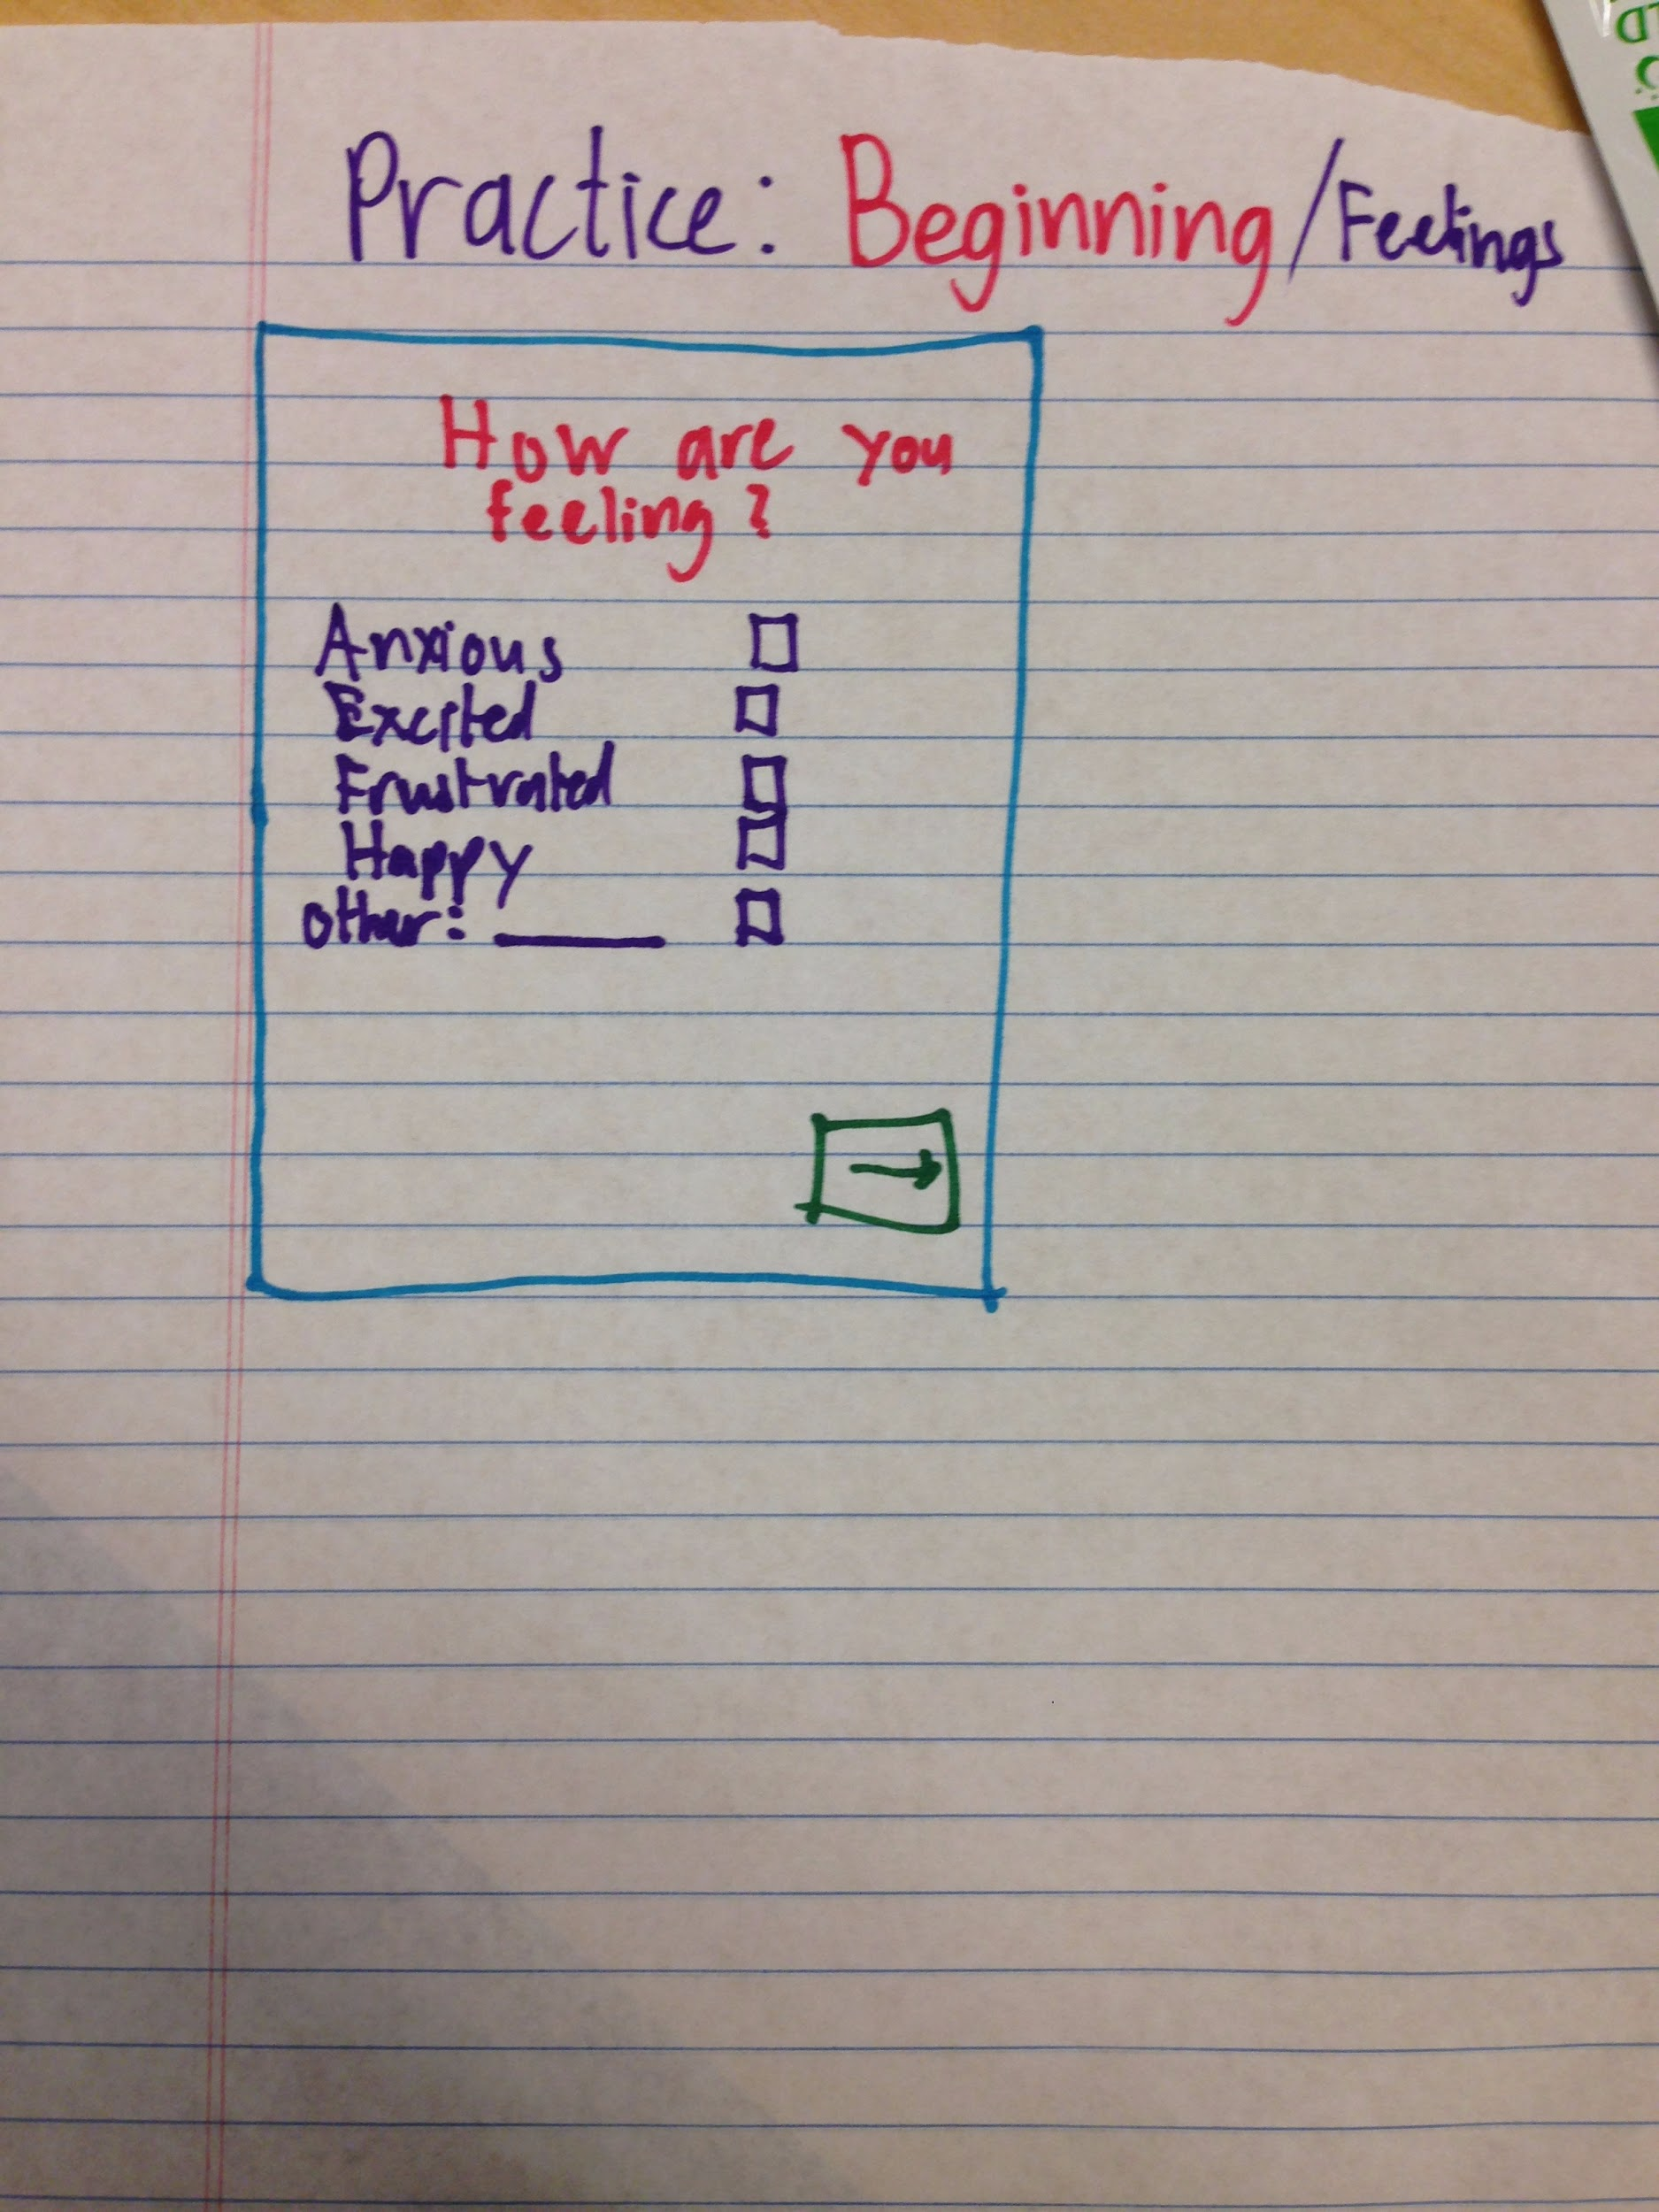 Practice: Beginning/Feelings
How are you
feeling?
Anxious
Excited
Frustrated
Happy
other: ______